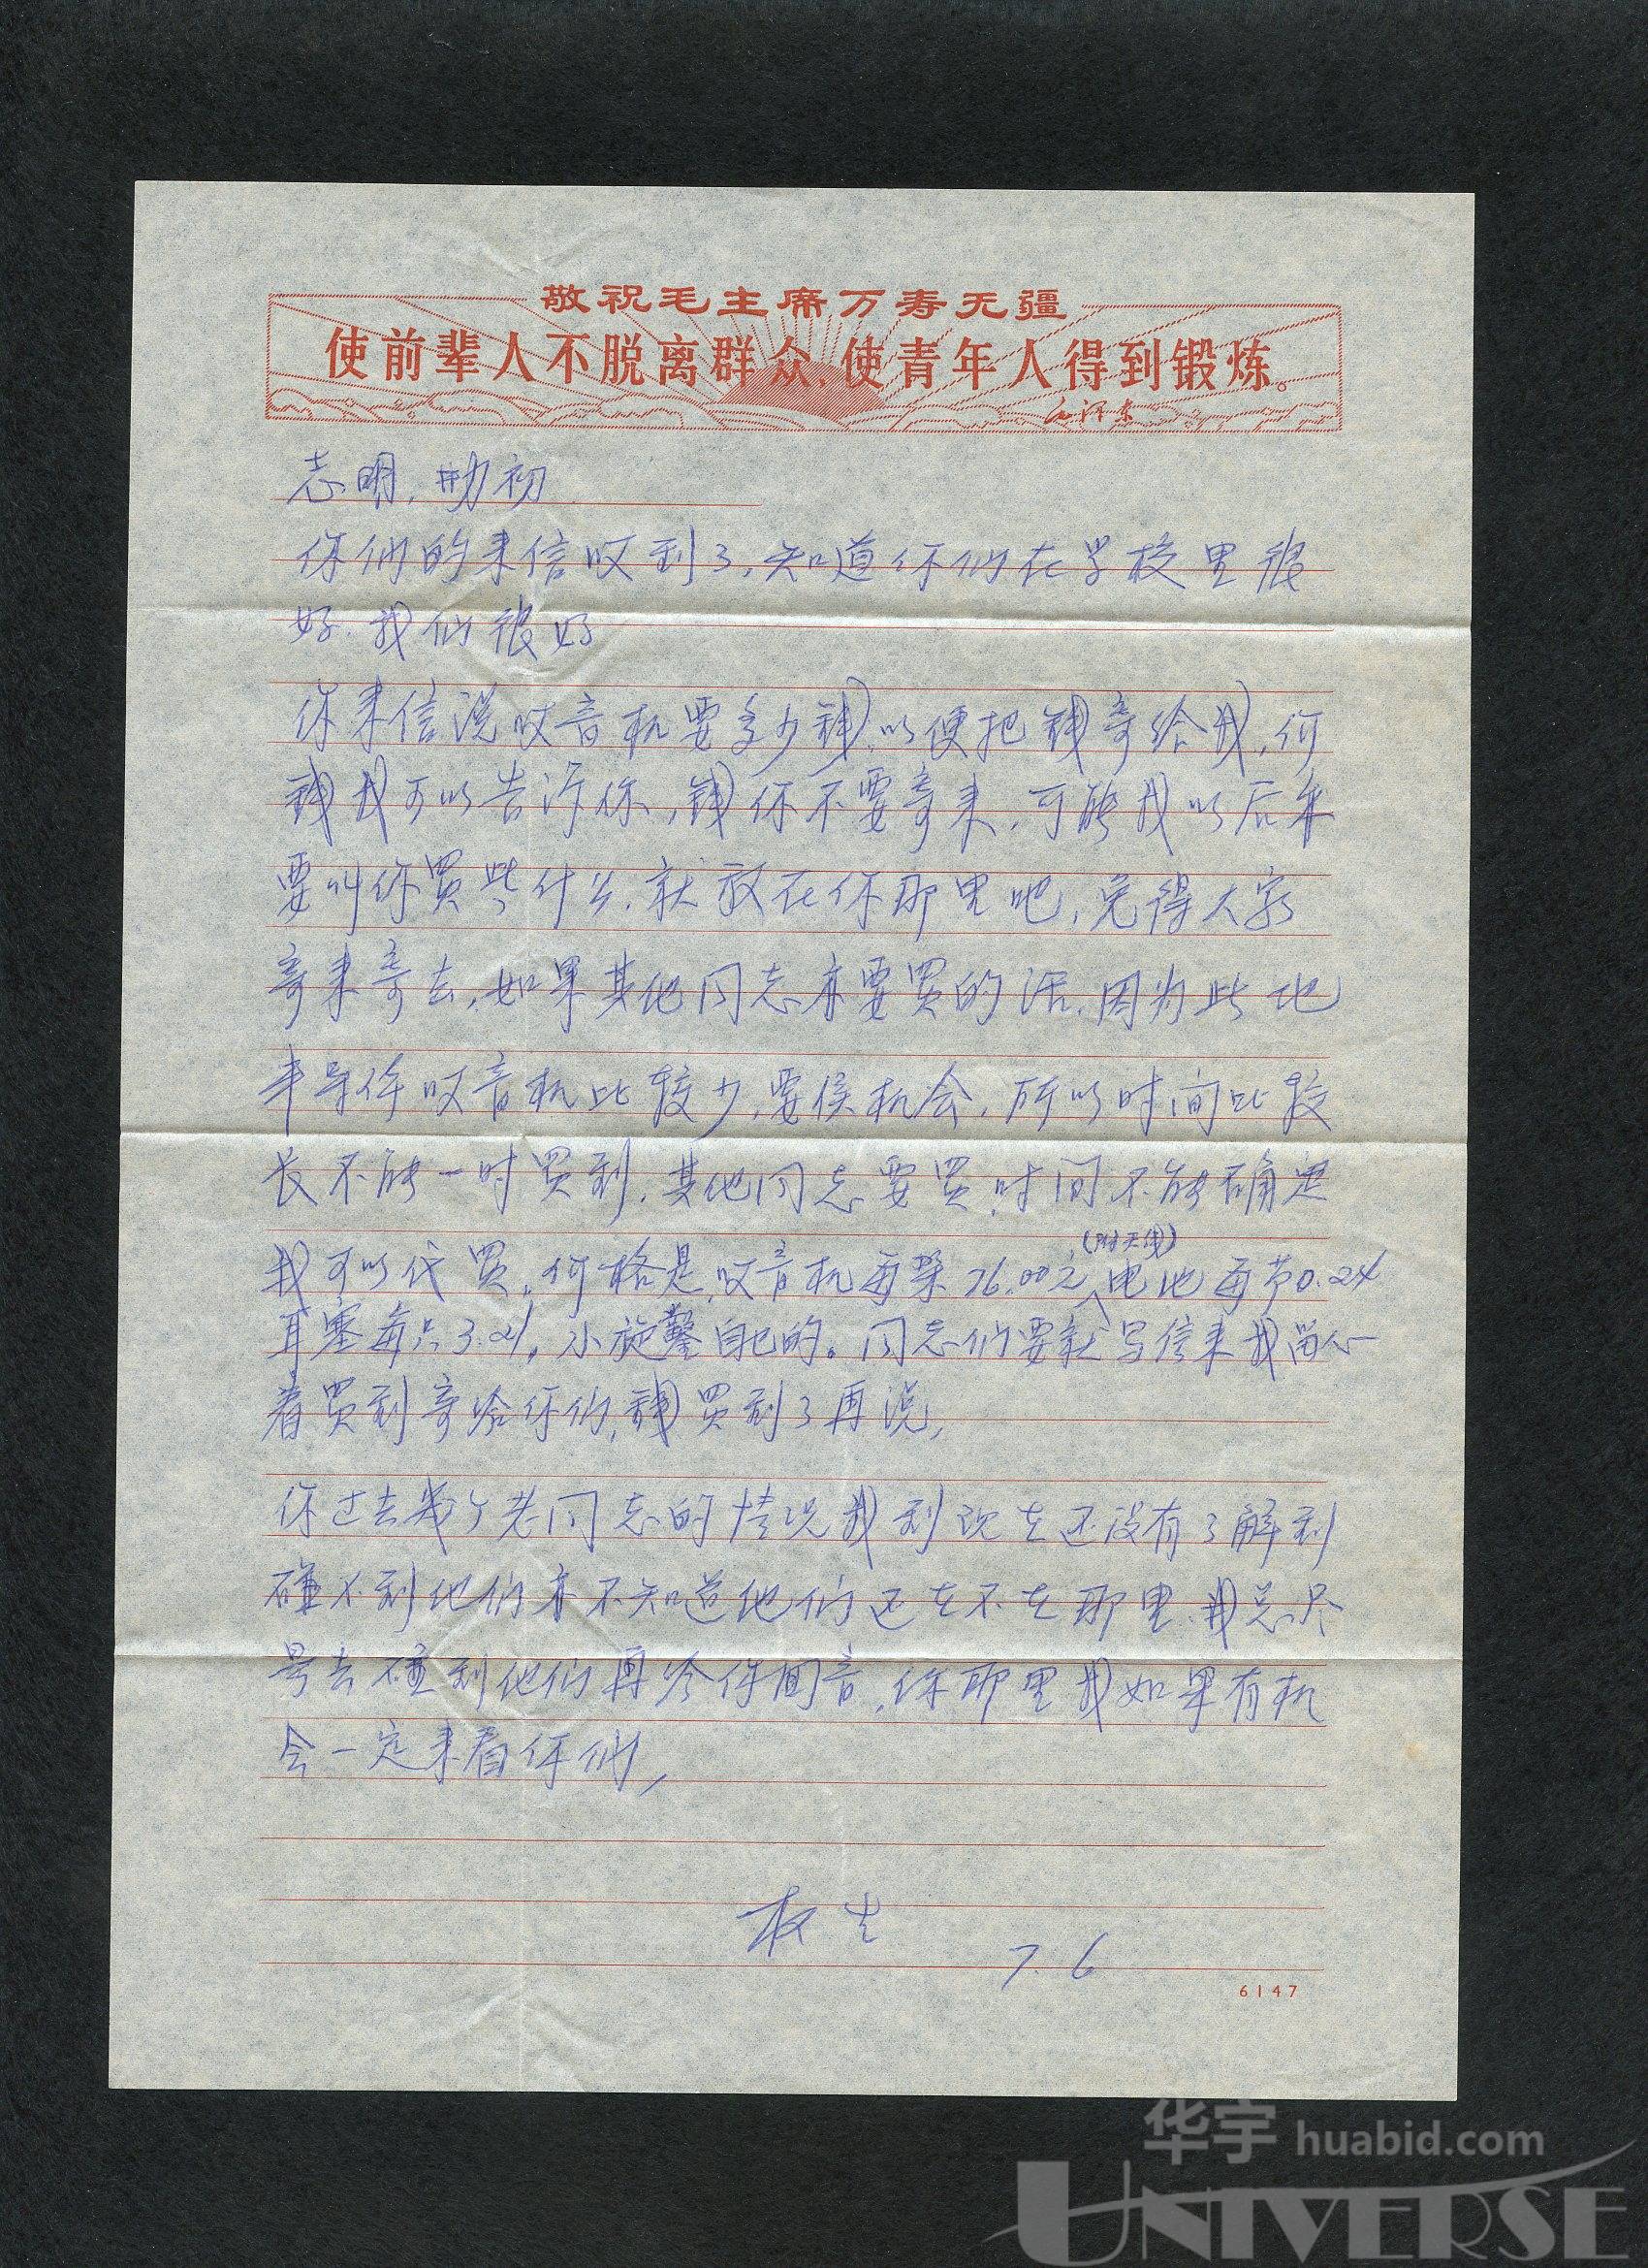 敬祝毛主席万寿无疆
使前辈人不脱离群众，使青年人得到锻炼。
毛泽东
志明，初
你们的来信收到了，知道你们在学校里很
好.我们很好
你来信说收音机要多少钱，以便把钱寄给我，何
钱我可以告诉你，钱你不要寄来，可能我以后来
要叫你买些什么，就放在你那里吧，免得大家
寄来寄去，如果其他同志亦要买的话，因为此地
半导体收音机比较少，要候机会，所以时间比较
长不能一时买到，其他同志要买，时间不能确定
(附天线)
我可以代买，价格是，收音机每架76.00元，电池每节0.24
耳塞每只3.21。小旋凿自己的。同志们要就写信来我留心
着买到寄给你们，钱买到了再说，
你过去几个老同志的情况我到现在还没有了解到
碰不到他们亦不知道他们还在不在那里，我总尽
量去碰到他们再给你回音，你那里我如果有机
会一定来看你们，
7.6
6147
华宇 huabid.com
UNIVERSE